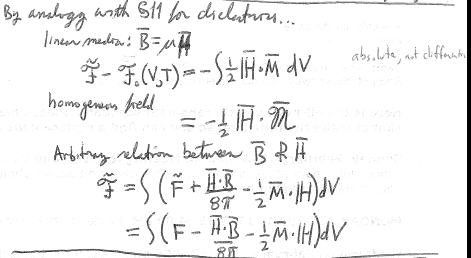 By analogy with §11 for dielectrics...
linear media: B̅ = μH̅
ℱ̃ - ℱ̃₀(V,T) = -∫ ½ ℍ̅·M̅ dV
absolute, not
homogeneous field
= -½ ℍ̅·𝓜̅
Arbitrary relation between B̅ & H̅
ℱ̃ = ∫ (F̃ + H̅·B̅/8π - ½ M̅·ℍ) dV
= ∫ (F - H̅·B̅/8π - ½ M̅·ℍ) dV